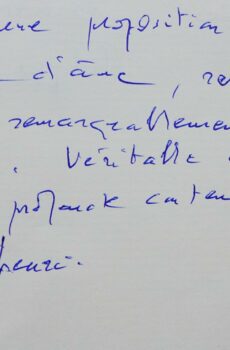 une proposition
d'âme, re
remarquablemen
. Véritable
profonde conten